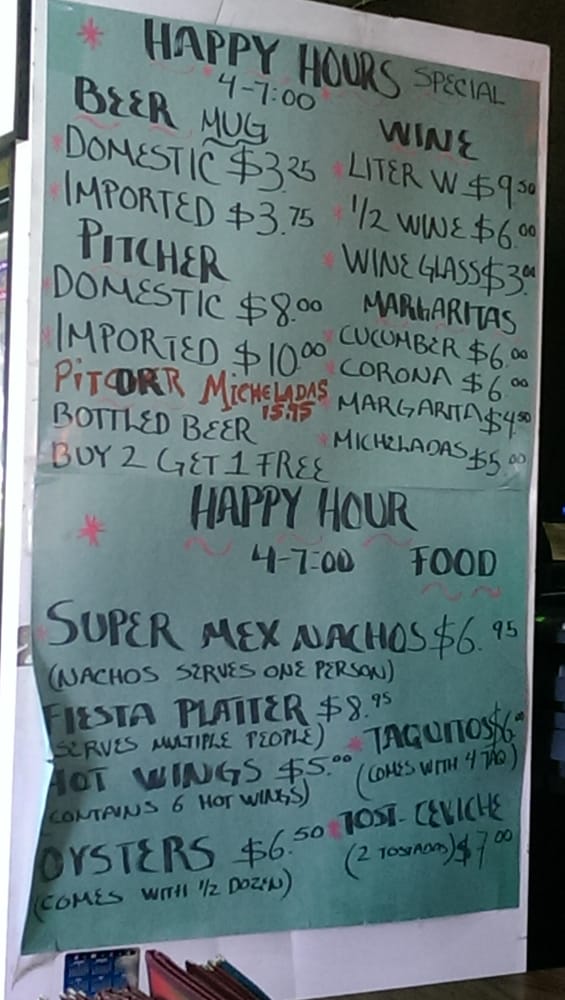 * HAPPY HOURS SPECIAL
4-7:00
BEER MUG
* DOMESTIC $3.25
* IMPORTED $3.75
PITCHER
DOMESTIC $8.00
* IMPORTED $10.00
PITCORR MICHELADAS
15.75
BOTTLED BEER
BUY 2 GET 1 FREE
WINE
* LITER W $9.50
* 1/2 WINE $6.00
* WINE GLASS $3.00
MARGARITAS
* CUCUMBER $6.00
* CORONA $6.00
* MARGARITA $4.50
* MICHELADAS $5.00
* HAPPY HOUR
4-7:00 FOOD
* SUPER MEX NACHOS $6.95
(NACHOS SERVES ONE PERSON)
FIESTA PLATTER $8.95
SERVES MULTIPLE PEOPLE)
HOT WINGS $5.00
CONTAINS 6 HOT WINGS)
OYSTERS $6.50
(COMES WITH 1/2 DOZEN)
* TAQUITOS $6.00
(COMES WITH 4 TAQ)
* TOST-CEVICHE
(2 TOSTADAS) $7.00